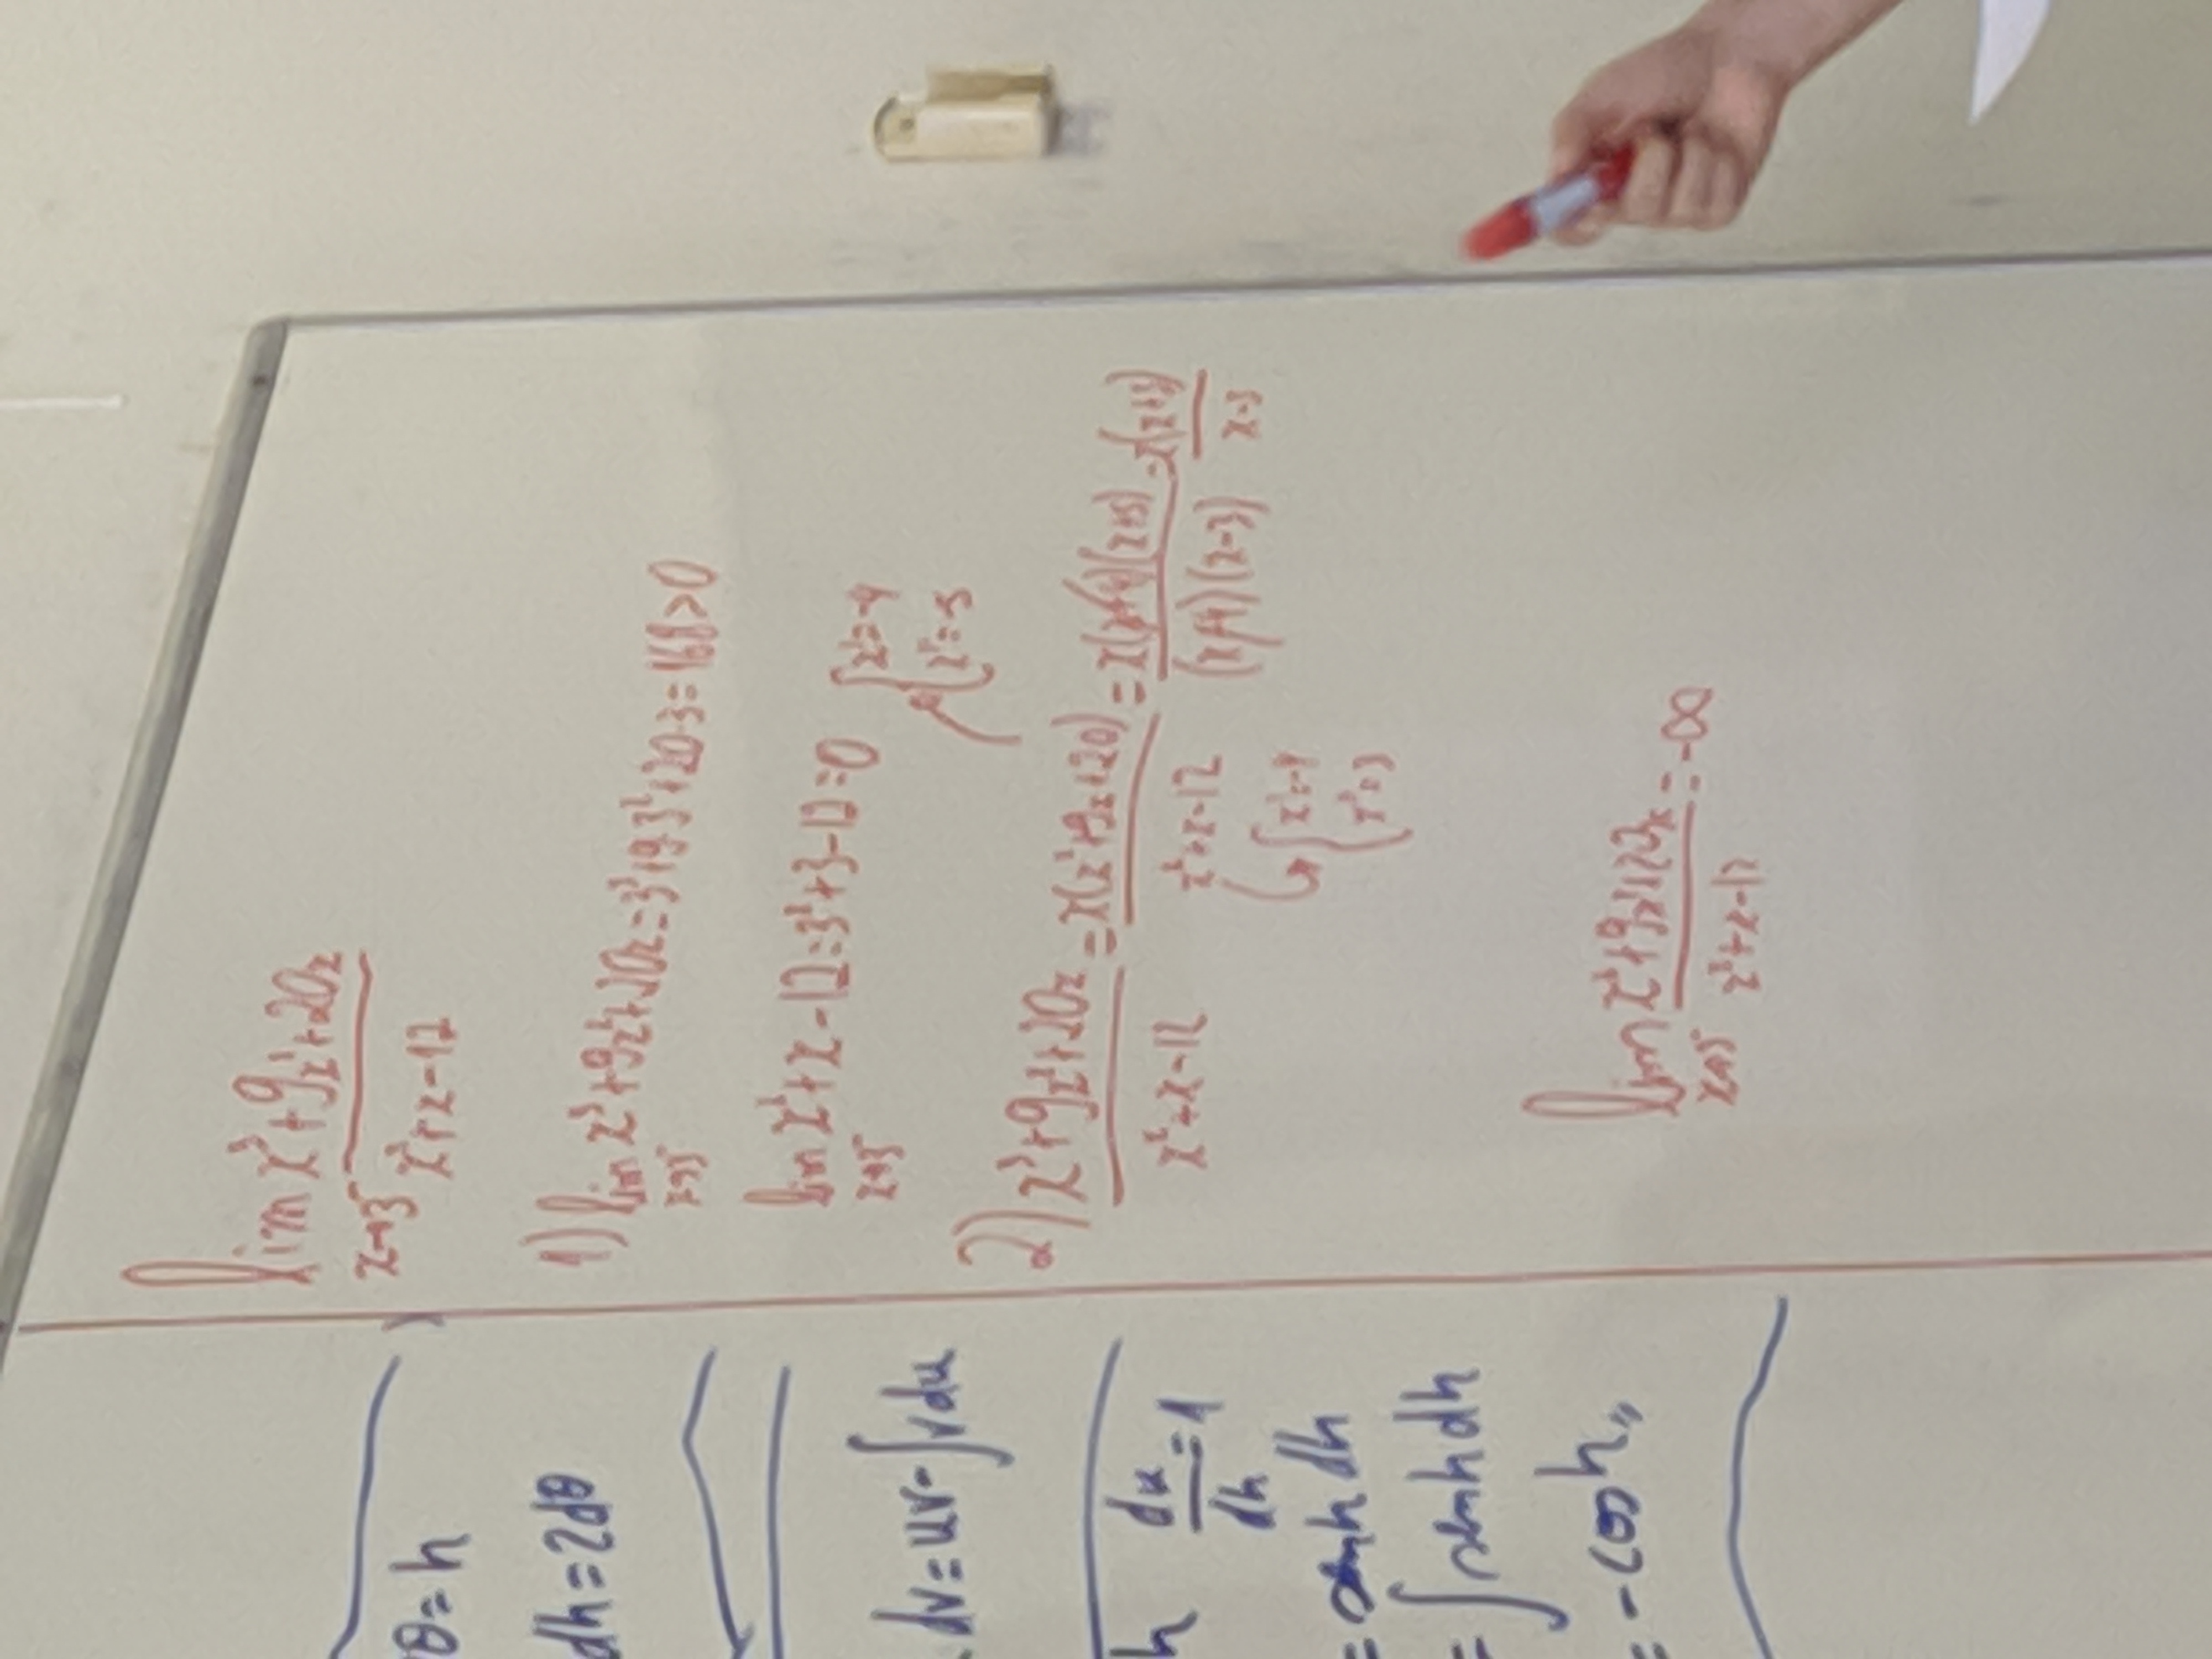 θ = h
dh = 2dθ
. dv = uv - ∫v du
h du/dh = 1
= senh dh
= ∫senh dh
= -cosh,,
lim x→3⁻ (x³+9x²+20x)/(x²+x-12)
1) lim x→3⁻ x³+9x²+20x = 3³+9·3²+20·3 = 168 > 0
lim x→3⁻ x²+x-12 = 3²+3-12 = 0
{x' = -4
x'' = -5
2) (x³+9x²+20x)/(x²+x-12) = x(x²+9x+20)/(x²+x-12) = x(x+4)(x+5)/((x+4)(x-3)) = x(x+5)/(x-3)
{x' = -4
x'' = 3
lim x→3⁻ (x³+9x²+20x)/(x²+x-12) = -∞